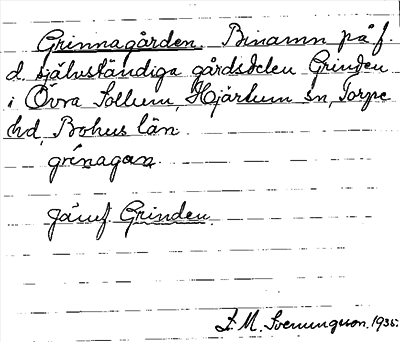 Grinnagården. Binamn på f.
d. självständiga gårdsdelen Grinden
i Övra Sollum, Hjärtum sn, Torpe
hd, Bohus län.
grinagan.
Jämf. Grinden.
F. M. Svenungsson. 1935.